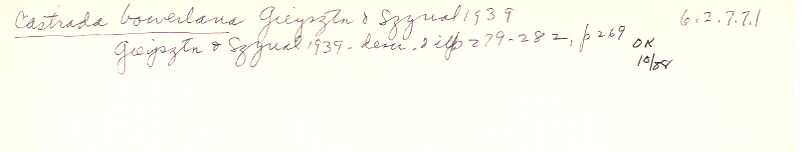 Castrada bowerlana Gieysztn & Szynal 1939 6.2.7.7.1
Gieysztn & Szynal 1939 - descr. & ill p 279-282, p 269 OK
10/88